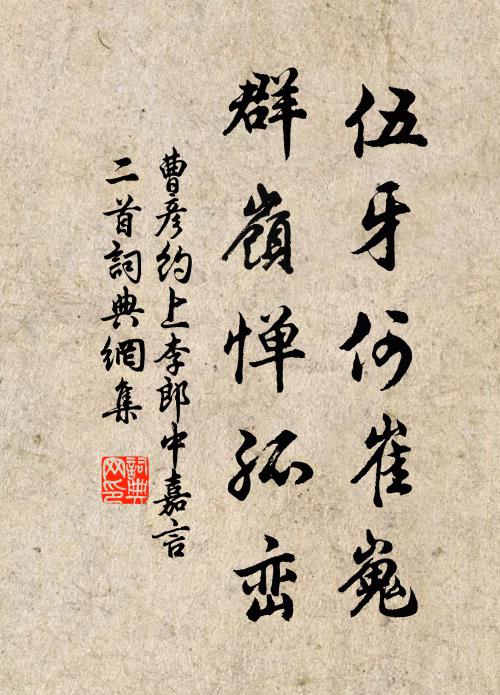 伍牙何崔嵬
群嶺惮孤峦
曹彦約上李郎中嘉言
二首詞典網集
詞典
网印